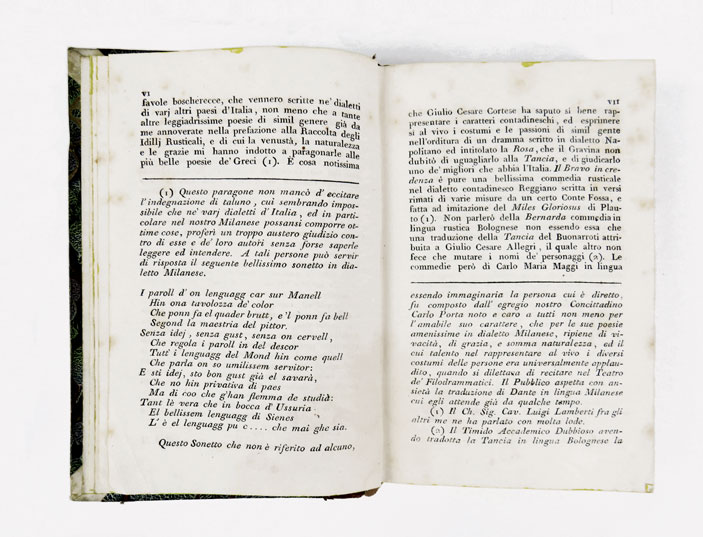 VI
favole boscherecce, che vennero scritte ne' dialetti
di varj altri paesi d'Italia, non meno che a tante
altre leggiadrissime poesie di simil genere già da
me annoverate nella prefazione alla Raccolta degli
Idillj Rusticali, e di cui la venustà, la naturalezza
e le grazie mi hanno indotto a paragonarle alle
più belle poesie de' Greci (1). È cosa notissima
(1) Questo paragone non mancò d'eccitare
l'indegnazione di taluno, cui sembrando impos-
sibile che ne' varj dialetti d'Italia, ed in parti-
colare nel nostro Milanese possansi comporre ot-
time cose, proferì un troppo austero giudizio con-
tro di esse e de' loro autori senza forse saperle
leggere ed intendere. A tali persone può servir
di risposta il seguente bellissimo sonetto in dia-
letto Milanese.
I paroll d' on lenguagg car sur Manell
Hin ona tavolozza de' color
Che ponn fa el quader brutt, e 'l ponn fa bell
Segond la maestria del pittor.
Senza idej, senza gust, senza on cervell,
Che regola i paroll in del descor
Tutt' i lenguagg del Mond hin come quell
Che parla on so umilissem servitor:
E sti idej, sto bon gust già el savarà,
Che no hin privativa di paes
Ma di coo che g'han flemma de studià:
Tant lè vera che in bocca d' Ussuria
El bellissem lenguagg di Sienes
L' è el lenguagg pu c.... che mai ghe sia.
Questo Sonetto che non è riferito ad alcuno,
VII
che Giulio Cesare Cortese ha saputo sì bene rap-
presentare i caratteri contadineschi, ed esprimere
sì al vivo i costumi e le passioni di simil gente
nell'orditura di un dramma scritto in dialetto Na-
politano ed intitolato la Rosa, che il Gravina non
dubitò di uguagliarlo alla Tancia, e di giudicarlo
uno de' migliori che abbia l'Italia. Il Bravo in cre-
denza è pure una bellissima commedia rusticale
nel dialetto contadinesco Reggiano scritta in versi
rimati di varie misure da un certo Conte Fossa, e
fatta ad imitazione del Miles Gloriosus di Plau-
to (1). Non parlerò della Bernarda commedia in
lingua rustica Bolognese non essendo essa che
una traduzione della Tancia del Buonarroti attri-
buita a Giulio Cesare Allegri, il quale altro non
fece che mutare i nomi de' personaggi (2). Le
commedie però di Carlo Maria Maggi in lingua
essendo immaginaria la persona cui è diretto,
fu composto dall' egregio nostro Concittadino
Carlo Porta noto e caro a tutti non meno per
l'amabile suo carattere, che per le sue poesie
amenissime in dialetto Milanese, ripiene di vi-
vacità, di grazia, e somma naturalezza, ed il
cui talento nel rappresentare al vivo i diversi
costumi delle persone era universalmente applau-
dito, quando si dilettava di recitare nel Teatro
de' Filodrammatici. Il Pubblico aspetta con an-
sietà la traduzione di Dante in lingua Milanese
cui egli attende già da qualche tempo.
(1) Il Ch. Sig. Cav. Luigi Lamberti fra gli
altri me ne ha parlato con molta lode.
(2) Il Timido Accademico Dubbioso aven-
do tradotta la Tancia in lingua Bolognese la